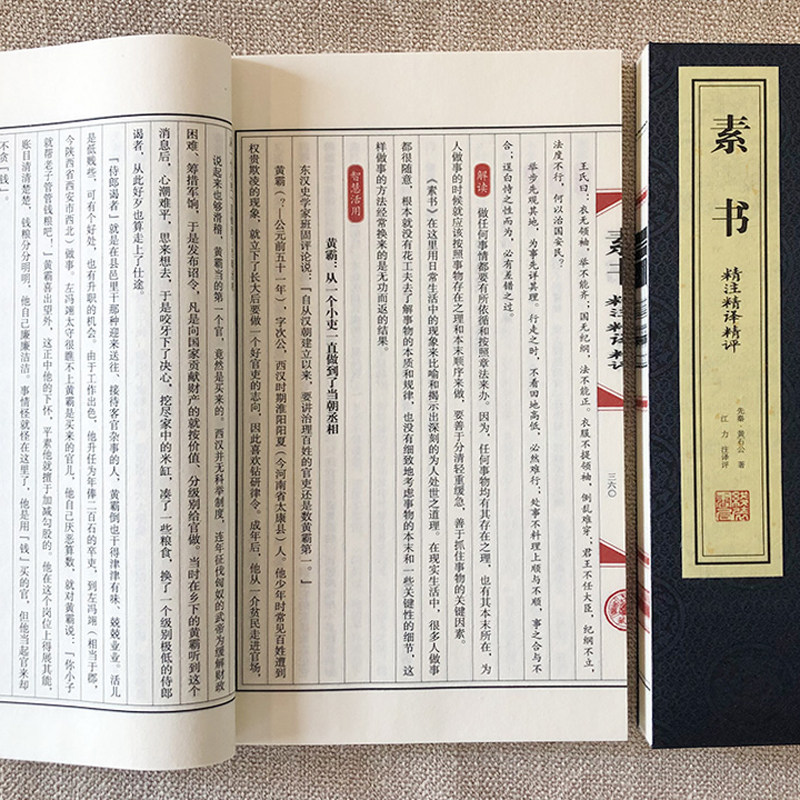 王氏曰：衣无领袖，举不能齐；国无纪纲，法不能正。衣服不提领袖，倒乱难穿；君王不任大臣，纪纲不立，
法度不行，何以治国安民？
举步先观其地，为事先详其理。行走之时，不看田地高低，必然难行；处事不料理上顺与不顺，事之合与不
合；逞自恃之性而为，必有差错之过。
解读
做任何事情都要有所依循和按照章法来办。因为，任何事物均有其存在之理，也有其本末所在，为
人做事的时候就应该按照事物存在之理和本末顺序来做，要善于分清轻重缓急，善于抓住事物的关键因素。
《素书》在这里用日常生活中的现象来比喻和揭示出深刻的为人处世之道理。在现实生活中，很多人做事
都很随意，根本就没有花工夫去了解事物的本质和规律，也没有细致地考虑事物的本末和一些关键性的细节，这
样做事的方法经常换来的是无功而返的结果。
智慧活用
黄霸：从一个小吏一直做到了当朝丞相
东汉史学家班固评论说：「自从汉朝建立以来，要讲治理百姓的官吏还是数黄霸第一。」
黄霸（？—公元前五十一年），字次公，西汉时期淮阳阳夏（今河南省太康县）人，他少年时常见百姓遭到
权贵欺凌的现象，就立下了长大后要做一个好官吏的志向，因此喜欢钻研律令。成年后，他从一介贫民走进官场，
三六〇
说起来也够滑稽，黄霸当的第一个官，竟然是买来的。西汉并无科举制度，连年征伐匈奴的武帝为缓解财政
困难、筹措军饷，于是发布诏令，凡是向国家贡献财产的就按价值、分级别给官做。当时在乡下的黄霸听到这个
消息后，心潮难平，思来想去，于是咬牙下了决心，挖尽家中的米缸，凑了一些粮食，换了一个级别极低的侍郎
谒者，从此好歹也算走上了仕途。
「侍郎谒者」就是在县邑里干那种迎来送往、接待客官杂事的人，黄霸倒也干得津津有味、兢兢业业。活儿
是低贱些，可有个好处，也有升职的机会。由于工作出色，他升任为年俸二百石的卒吏，到左冯翊（相当于郡，
今陕西省西安市西北）做事。左冯翊太守很瞧不上黄霸是买来的官儿，他自己厌恶算数，就对黄霸说：「你小子
就帮老子管管钱粮吧！」黄霸喜出望外，这正中他的下怀，平素他就擅于加减勾股的。他在这个岗位上得展其能，
账目清清楚楚，钱粮分分明明，他自己廉廉洁洁。事情怪就怪在这里了，他是用「钱」买的官，但他当起官来却
不贪「钱」。
素书
精注精译精评
素书
精注精译精评
先秦 黄石公 著
江力 注译评